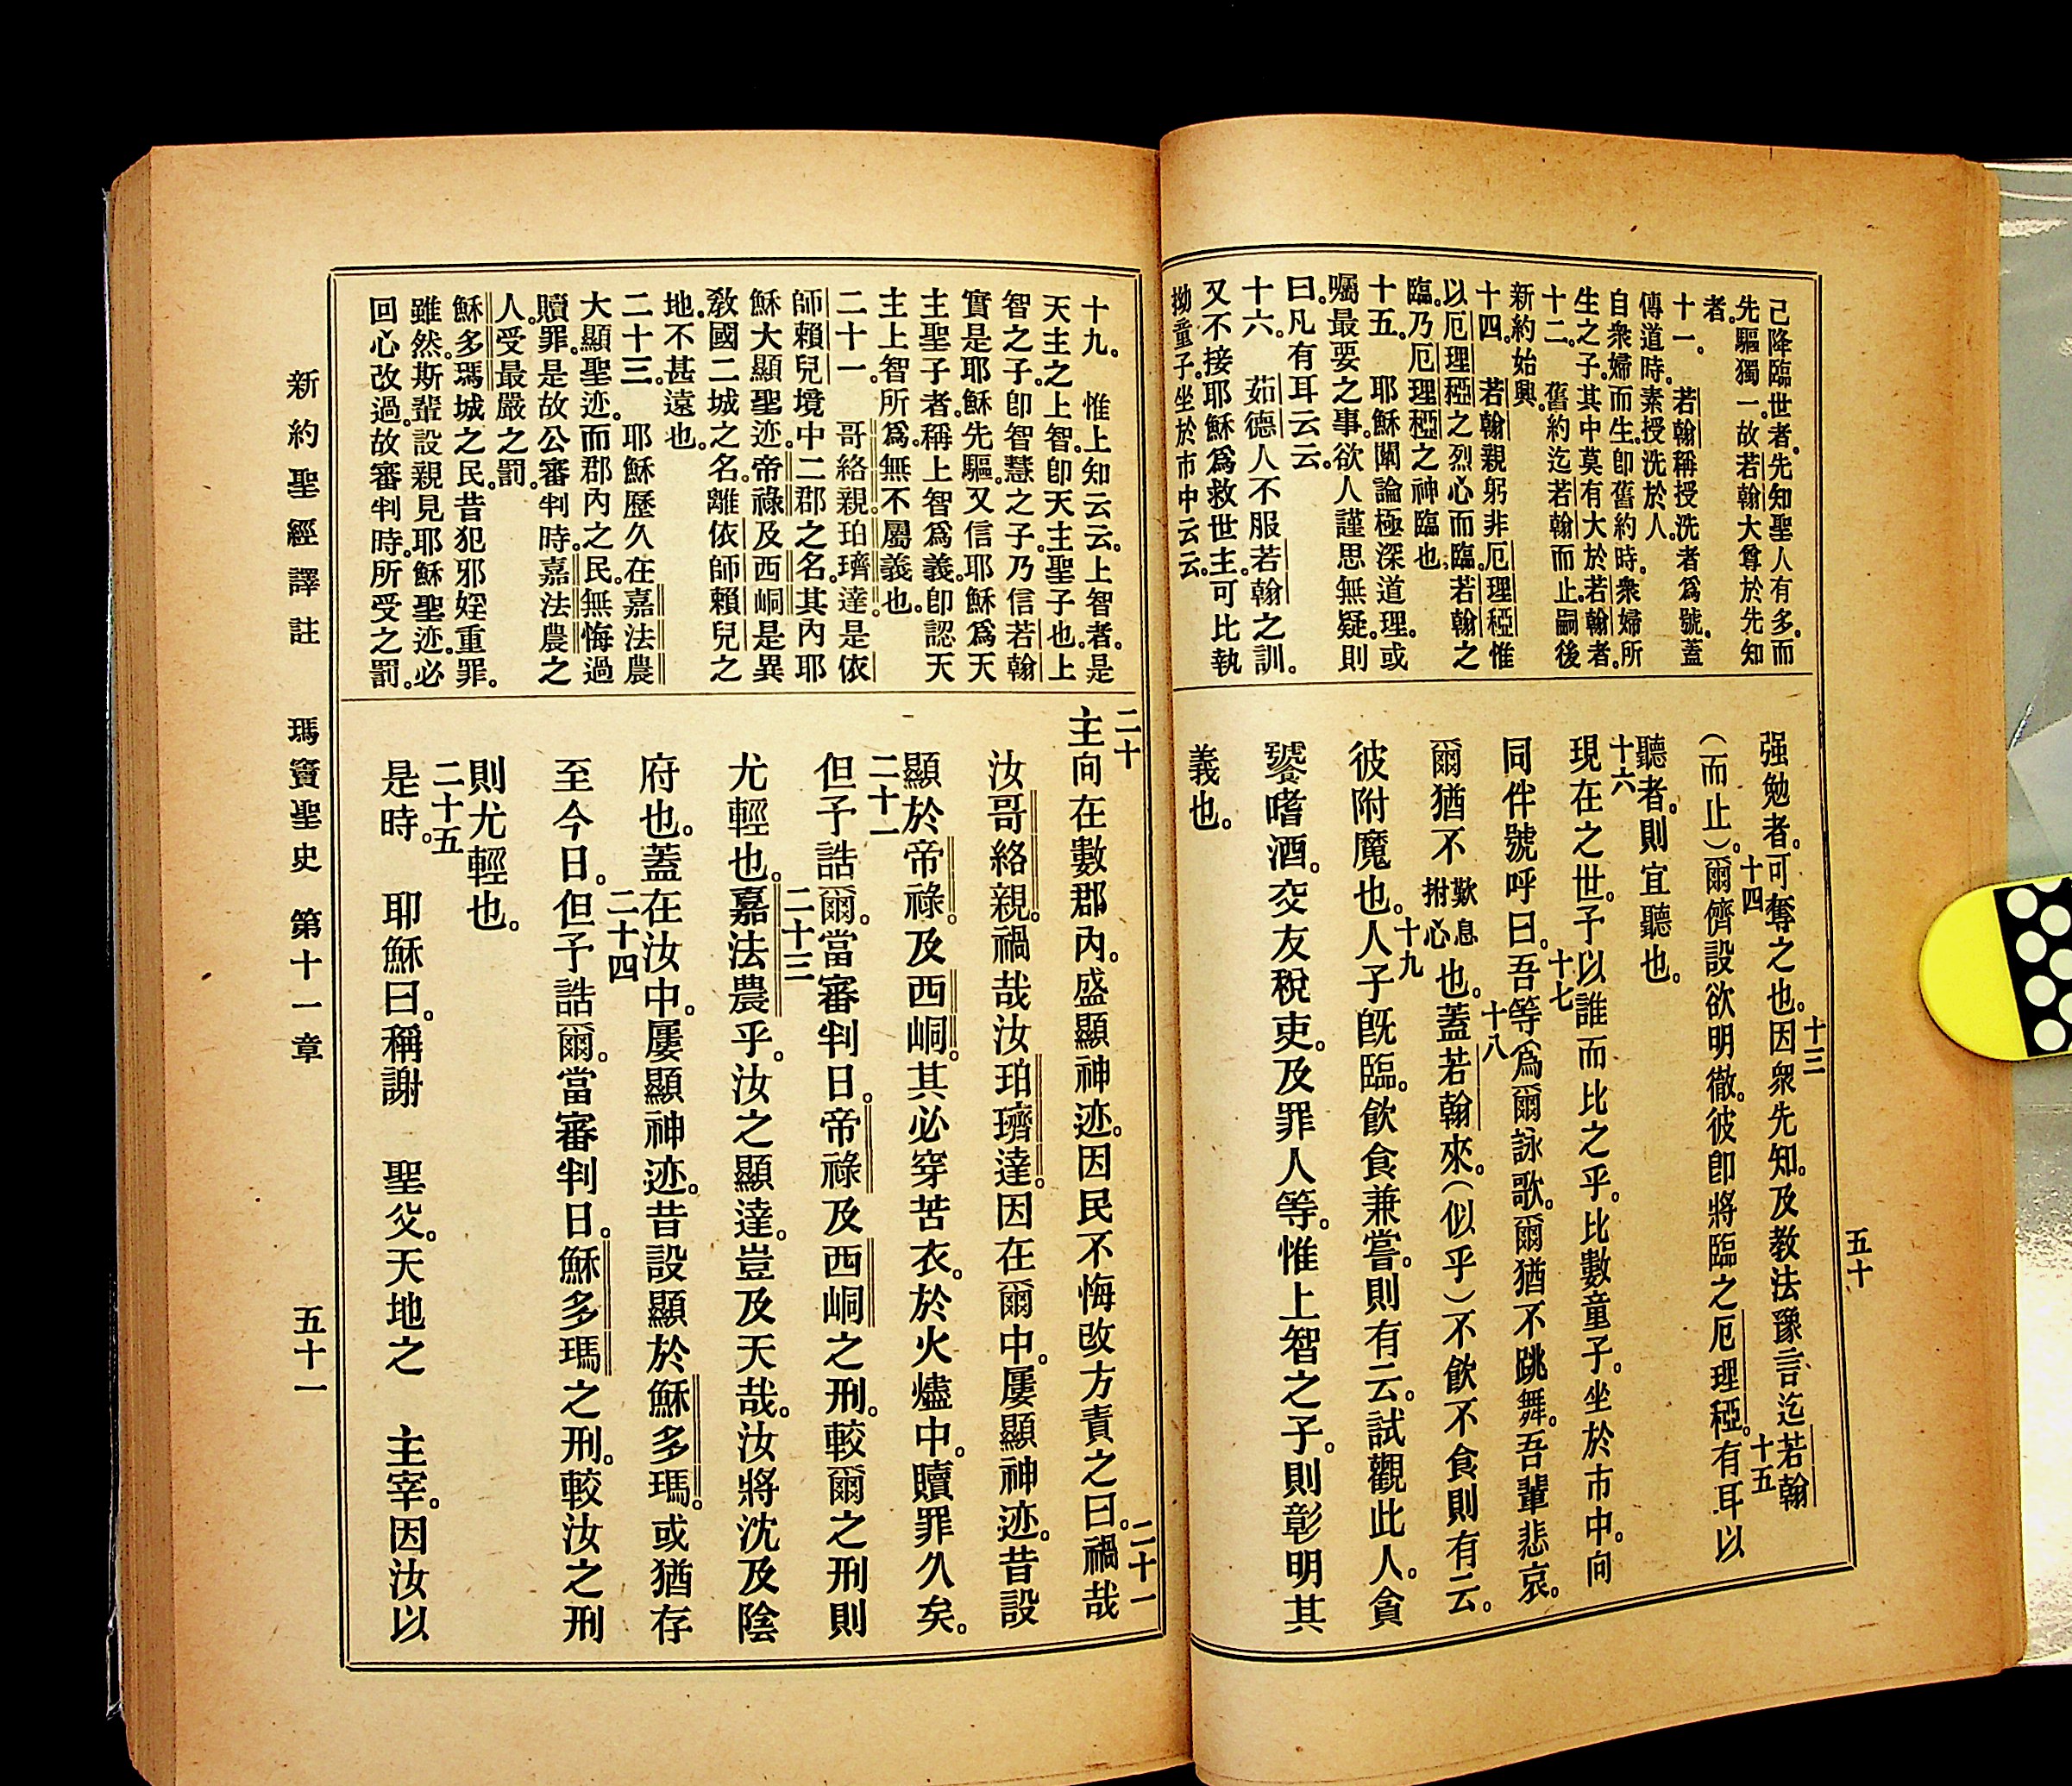 五十
己降臨世者。先知聖人有多。而
先驅獨一。故若翰大尊於先知
者。
十一。　若翰稱授洗者爲號。蓋
傳道時。素授洗於人。
自衆婦而生。卽舊約時。衆婦所
生之子。其中莫有大於若翰者。
十二。　舊約迄若翰而止。嗣後
新約始興。
十四。　若翰親躬非厄理稏。惟
以厄理稏之烈心而臨。若翰之
臨。乃厄理稏之神臨也。
十五。　耶穌闡論極深道理。或
囑最要之事。欲人謹思無疑。則
曰。凡有耳云云。
十六。　茹德人不服若翰之訓。
又不接耶穌爲救世主。可比執
拗童子。坐於市中云云。
强勉者。可奪之也。十三因衆先知。及教法豫言迄若翰
(而止)。十四爾儕設欲明徹。彼卽將臨之厄理稏。十五有耳以
聽者。則宜聽也。
十六現在之世。予以誰而比之乎。比數童子。坐於市中。向
同伴號呼曰。十七吾等爲爾詠歌。爾猶不跳舞。吾輩悲哀。
爾猶不歎息拊心也。十八蓋若翰來。(似乎)不飲不食。則有云。
彼附魔也。十九人子旣臨。飲食兼嘗。則有云。試觀此人。貪
饕嗜酒。交友稅吏。及罪人等。惟上智之子。則彰明其
義也。
十九。　惟上知云云。上智者。是
天主之上智。卽天主聖子也。上
智之子。卽智慧之子。乃信若翰
實是耶穌先驅。又信耶穌爲天
主聖子者。稱上智爲義。卽認天
主上智所爲。無不屬義也。
二十一。　哥絡親。珀璾達。是依
師賴兒境中二郡之名。其內耶
穌大顯聖迹。帝祿及西峒。是異
教國二城之名。離依師賴兒之
地。不甚遠也。
二十三。　耶穌歷久在嘉法農
大顯聖迹。而郡內之民。無悔過
贖罪。是故公審判時。嘉法農之
人。受最嚴之罰。
穌多瑪城之民。昔犯邪婬重罪。
雖然。斯輩設親見耶穌聖迹。必
回心改過。故審判時。所受之罰。
二十主向在數郡內。盛顯神迹。因民不悔改。方責之曰。二十一禍哉
汝哥絡親。禍哉汝珀璾達。因在爾中。屢顯神迹。昔設
顯於帝祿。及西峒。其必穿苦衣。於火燼中。贖罪久矣。
二十二但予誥爾。當審判日。帝祿及西峒之刑。較爾之刑則
尤輕也。二十三嘉法農乎。汝之顯達。豈及天哉。汝將沈及陰
府也。蓋在汝中。屢顯神迹。昔設顯於穌多瑪。或猶存
至今日。二十四但予誥爾。當審判日。穌多瑪之刑。較汝之刑
則尤輕也。
二十五是時。　耶穌曰。稱謝　聖父。天地之　主宰。因汝以
新約聖經譯註　瑪竇聖史　第十一章　五十一